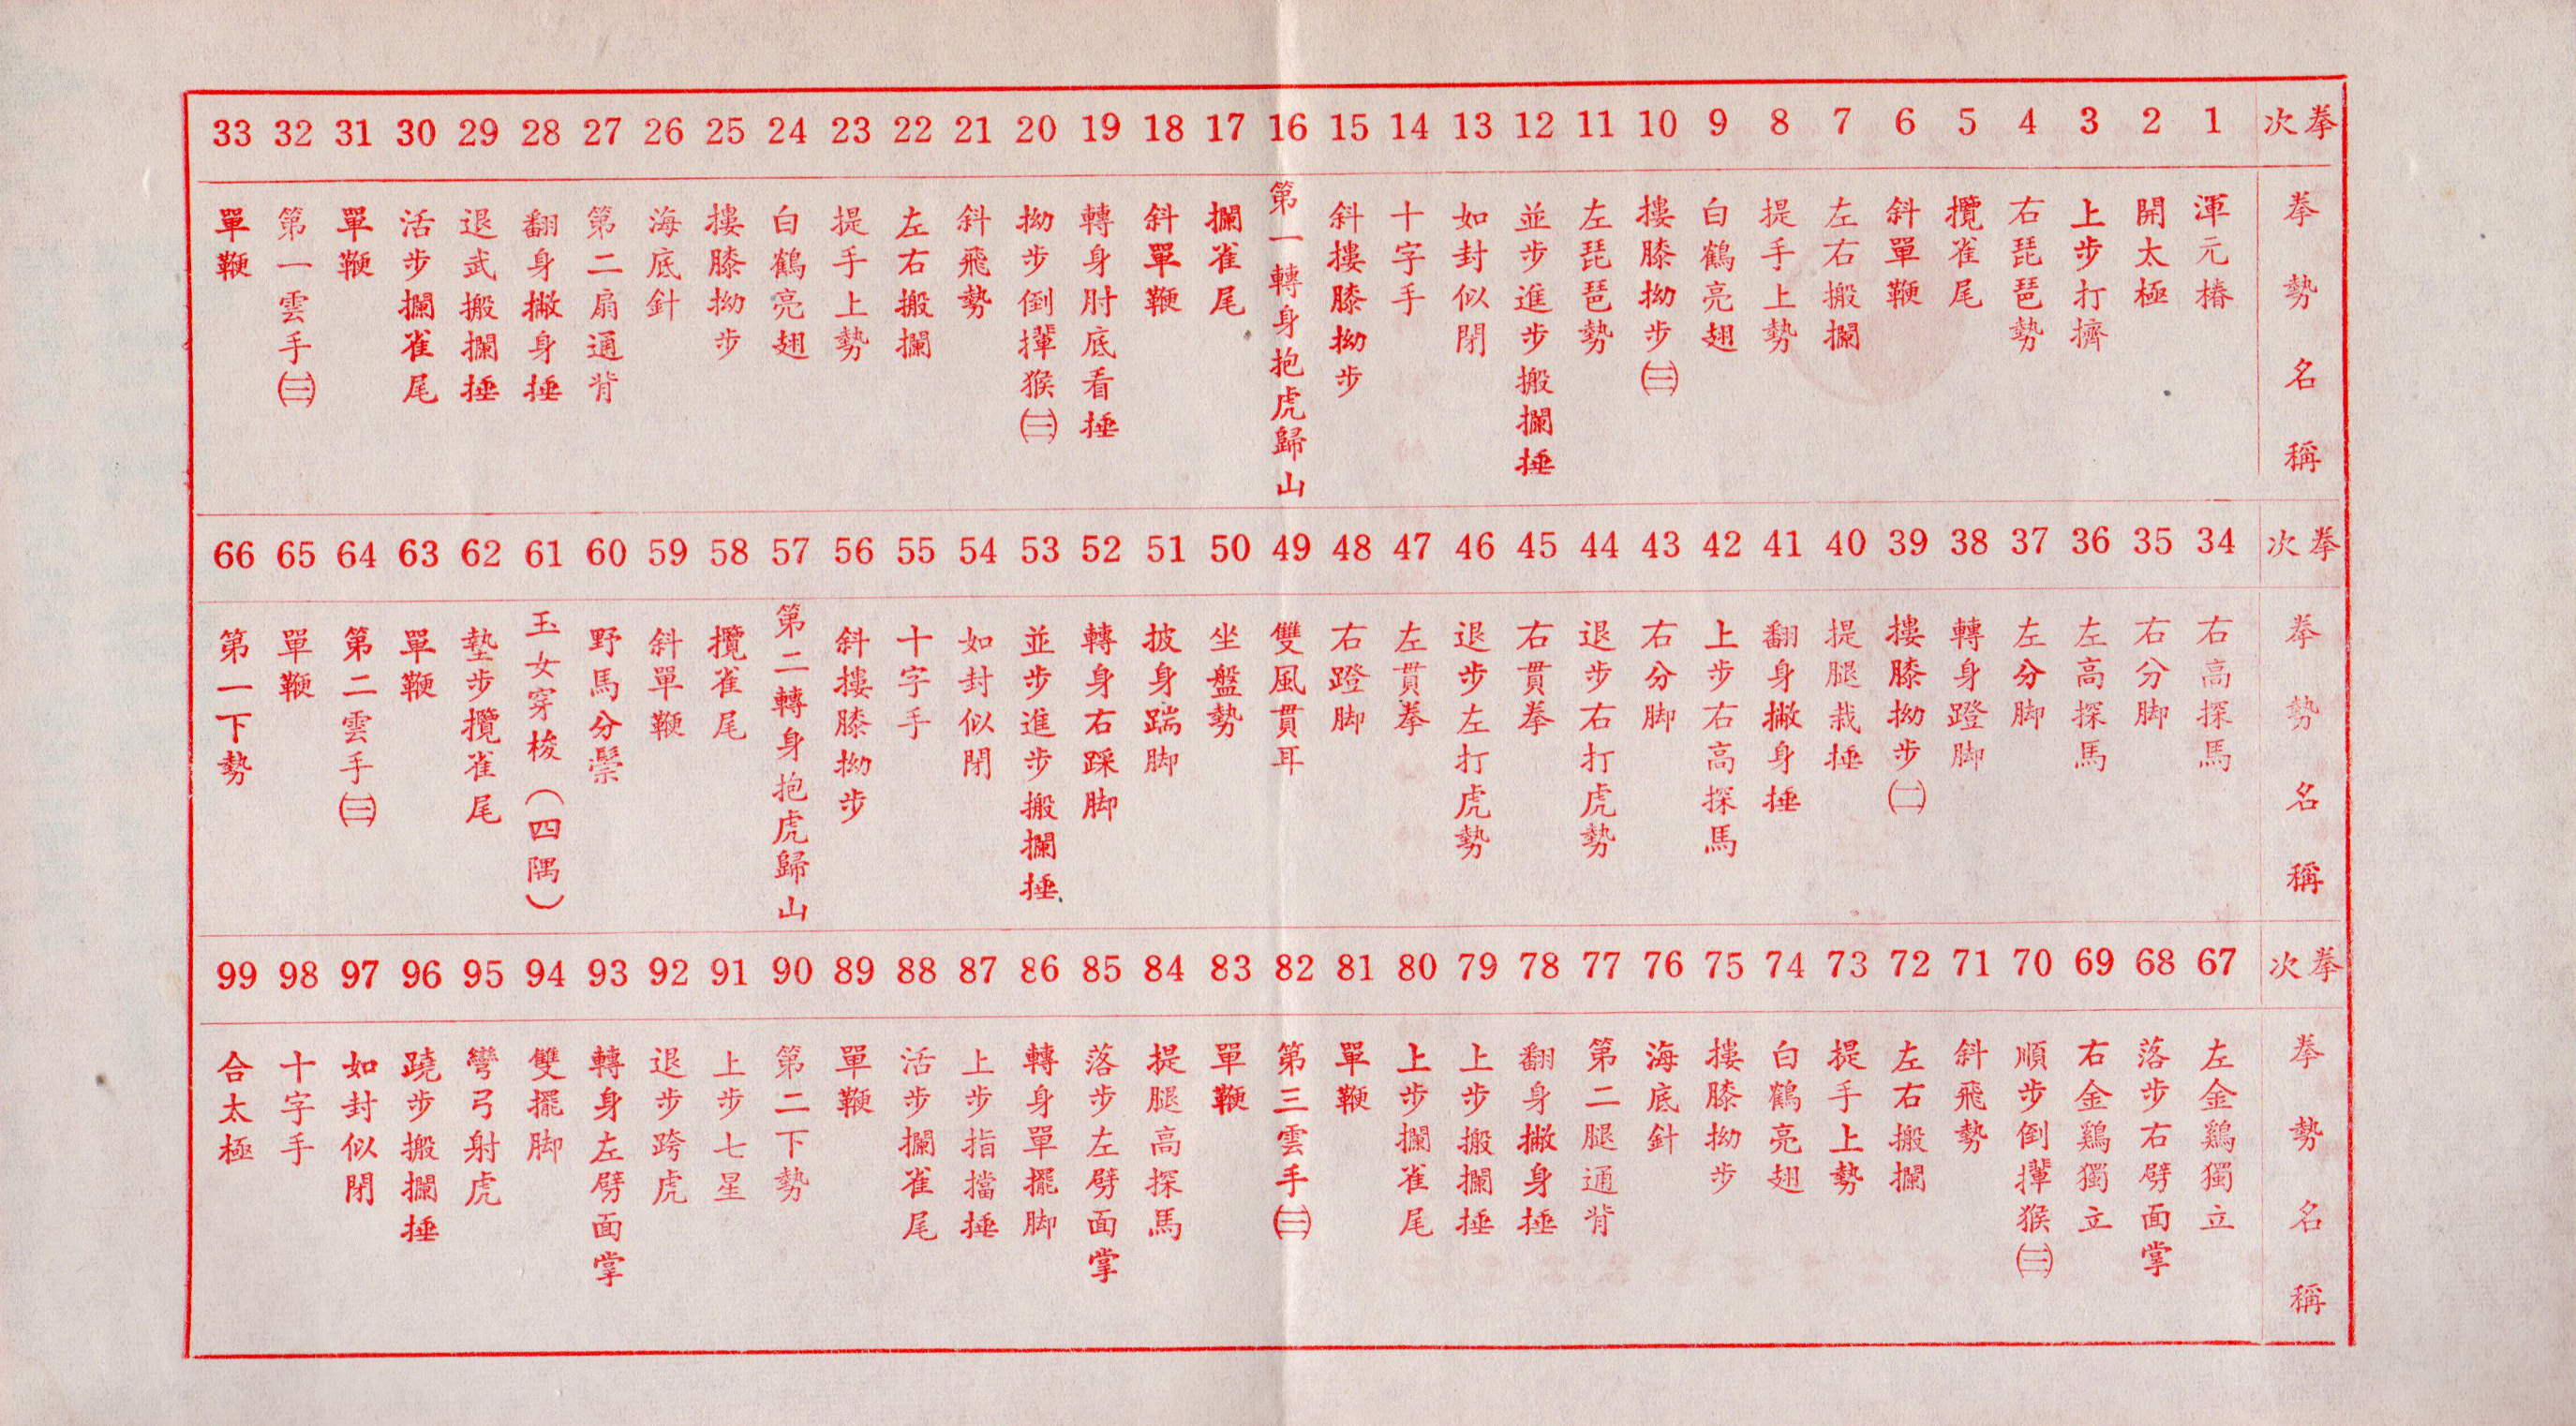 拳次 1 2 3 4 5 6 7 8 9 10 11 12 13 14 15 16 17 18 19 20 21 22 23 24 25 26 27 28 29 30 31 32 33
拳勢名稱
渾元樁
開太極
上步打擠
右琵琶勢
攬雀尾
斜單鞭
左右搬攔
提手上勢
白鶴亮翅
摟膝拗步㈢
左琵琶勢
並步進步搬攔捶
如封似閉
十字手
斜摟膝拗步
第一轉身抱虎歸山
攔雀尾
斜單鞭
轉身肘底看捶
拗步倒攆猴㈢
斜飛勢
左右搬攔
提手上勢
白鶴亮翅
摟膝拗步
海底針
第二扇通背
翻身撇身捶
退武搬攔捶
活步攔雀尾
單鞭
第一雲手㈢
單鞭
拳次 34 35 36 37 38 39 40 41 42 43 44 45 46 47 48 49 50 51 52 53 54 55 56 57 58 59 60 61 62 63 64 65 66
拳勢名稱
右高探馬
右分脚
左高探馬
左分脚
轉身蹬脚
摟膝拗步㈡
提腿栽捶
翻身撇身捶
上步右高探馬
右分脚
退步右打虎勢
右貫拳
退步左打虎勢
左貫拳
右蹬脚
雙風貫耳
坐盤勢
披身踹脚
轉身右踩脚
並步進步搬攔捶
如封似閉
十字手
斜摟膝拗步
第二轉身抱虎歸山
攬雀尾
斜單鞭
野馬分鬃
玉女穿梭（四隅）
墊步攬雀尾
單鞭
第二雲手㈢
單鞭
第一下勢
拳次 67 68 69 70 71 72 73 74 75 76 77 78 79 80 81 82 83 84 85 86 87 88 89 90 91 92 93 94 95 96 97 98 99
拳勢名稱
左金鷄獨立
落步右劈面掌
右金鷄獨立
順步倒攆猴㈢
斜飛勢
左右搬攔
提手上勢
白鶴亮翅
摟膝拗步
海底針
第二腿通背
翻身撇身捶
上步搬攔捶
上步攔雀尾
單鞭
第三雲手㈢
單鞭
提腿高探馬
落步左劈面掌
轉身單擺脚
上步指擋捶
活步攔雀尾
單鞭
第二下勢
上步七星
退步跨虎
轉身左劈面掌
雙擺脚
彎弓射虎
蹺步搬攔捶
如封似閉
十字手
合太極